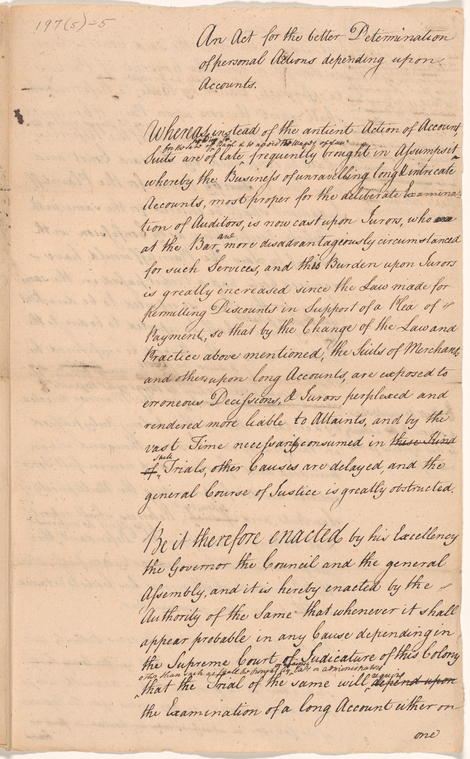 197(5)-5
An Act for the better Determination
of personal Actions depending upon
Accounts.
Whereas instead of the antient Action of Account
Suits are of late frequently brought in Assumpsit
whereby the Business of unravelling long & intricate
Accounts, most proper for the deliberate Examina-
tion of Auditors, is now cast upon Jurors, who
at the Bar, are more disadvantageously circumstanced
for such Services, and this Burden upon Jurors
is greatly increased since the Law made for
permitting Discounts in Support of a Plea of
Payment, so that by the Change of the Law and
Practice above mentioned, the Suits of Merchants
and others upon long Accounts, are exposed to
erroneous Decissions, & Jurors perplexed and
rendered more liable to Attaints, and by the
vast Time necessarily consumed in these Kind
such
of Trials, other Causes are delayed and the
general Course of Justice is greatly obstructed.
Be it therefore enacted by his Excellency
the Governor the Council and the general
Assembly, and it is hereby enacted by the
Authority of the Same that whenever it shall
appear probable in any Cause depending in
the Supreme Court of Judicature of this Colony
other than such as shall be brought by or against administrators
that the Trial of the same will require depend upon
the Examination of a long Account either on
one